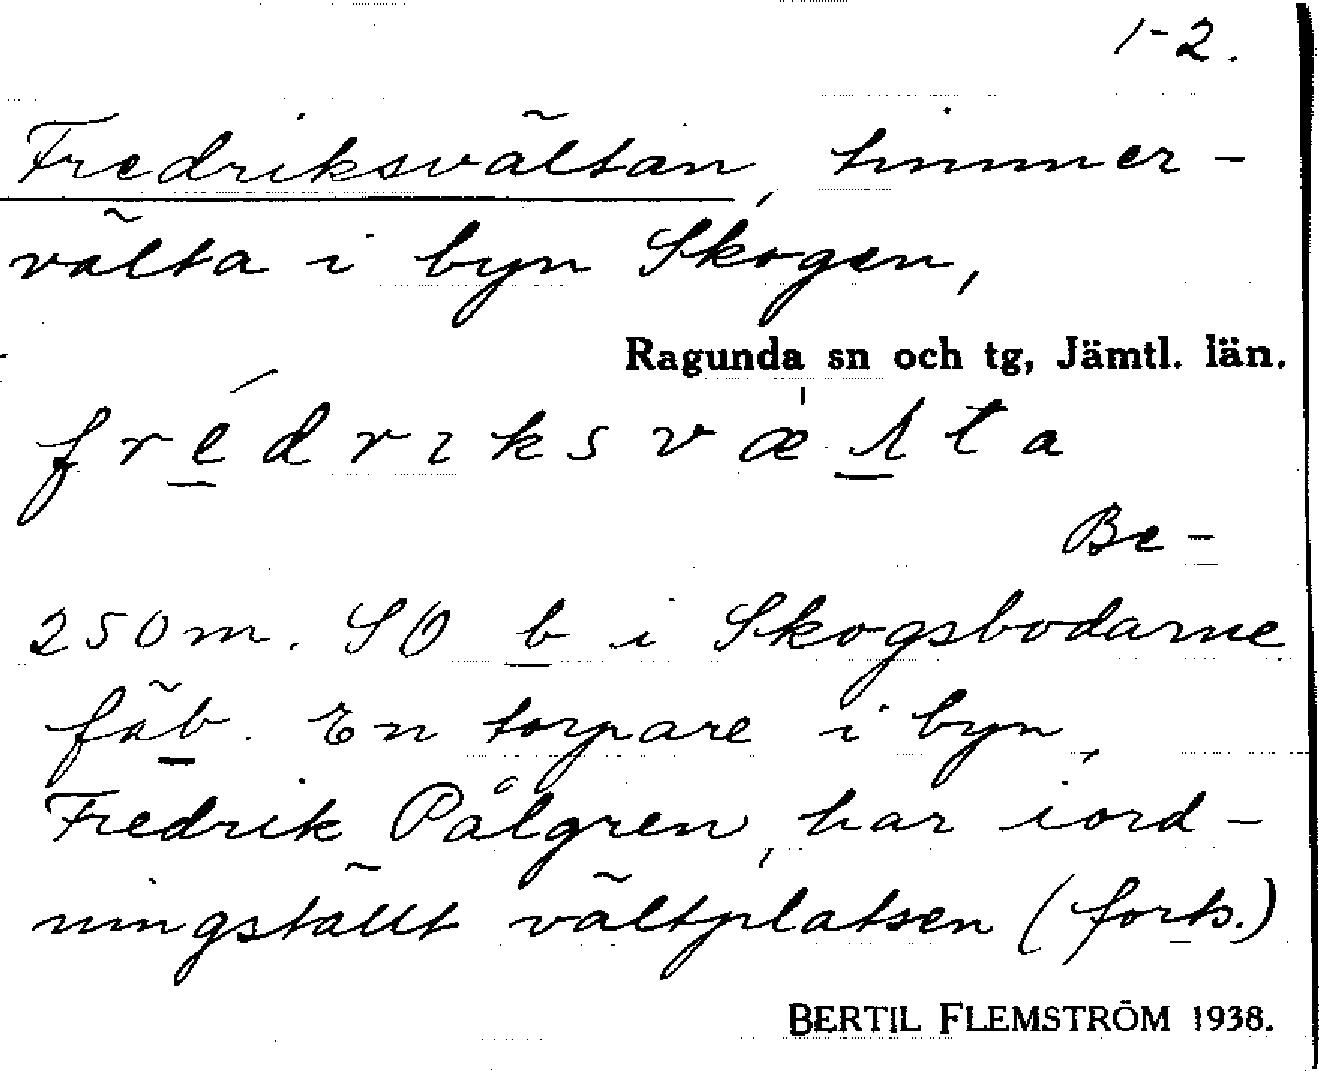 1-2.
Fredriksvältan, timmer-
välta i byn Skogen,
Ragunda sn och tg, Jämtl. län.
Be-
250 m. SO b i Skogsbodarne
fäb. En torpare i byn,
Fredrik Pålgren, har iord-
ningställt vältplatsen (forts.)
BERTIL FLEMSTRÖM 1938.